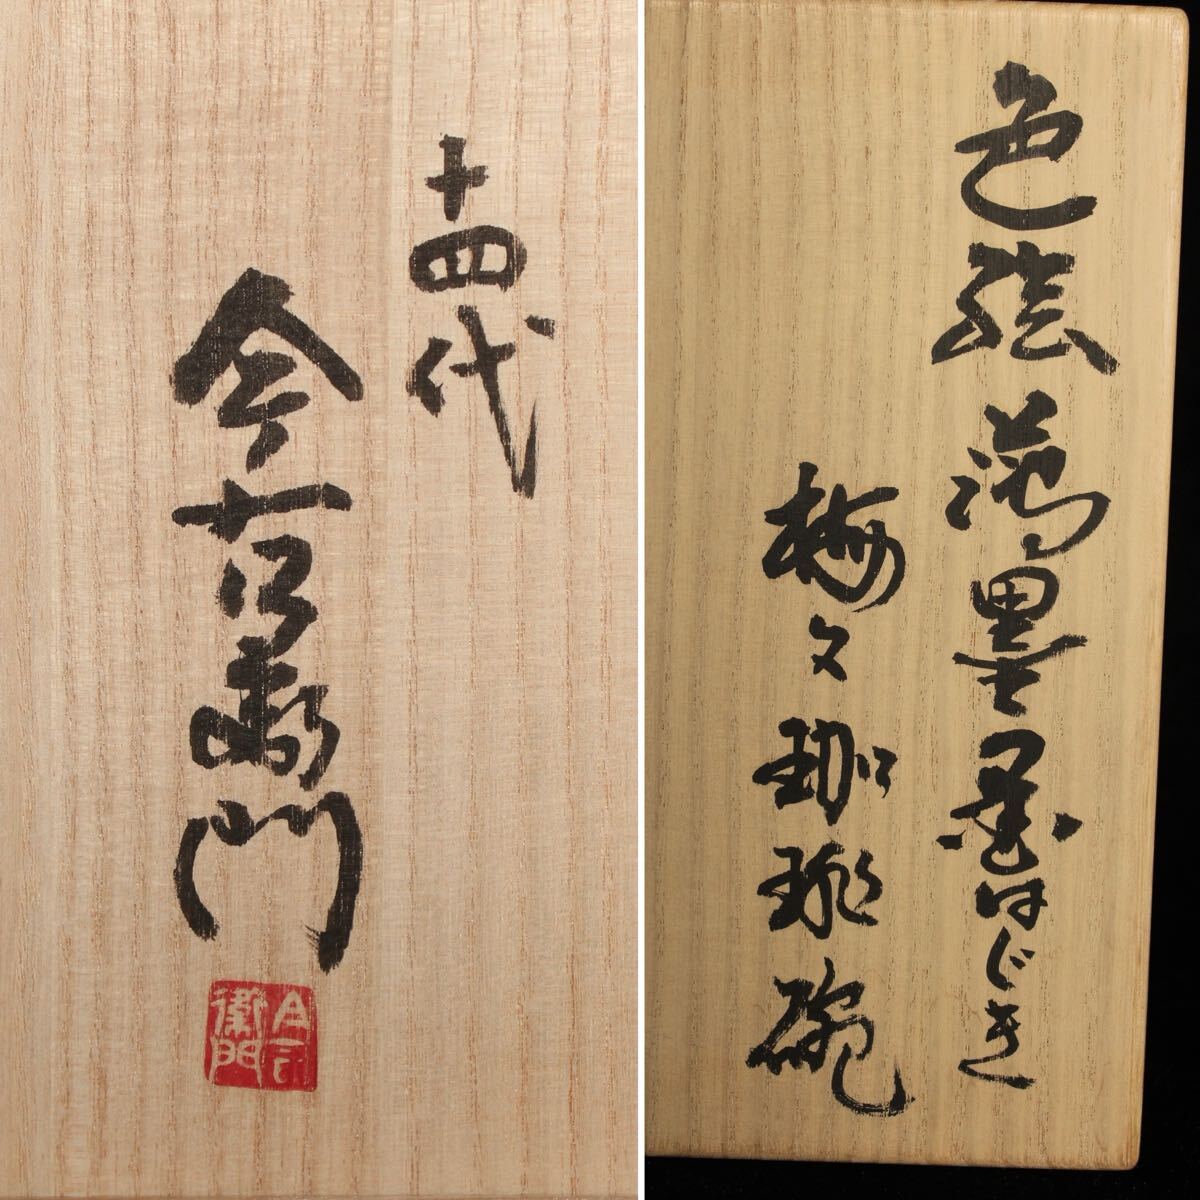 十四代
今右衛門
今右衛門
色絵薄墨墨はじき
梅文珈琲碗